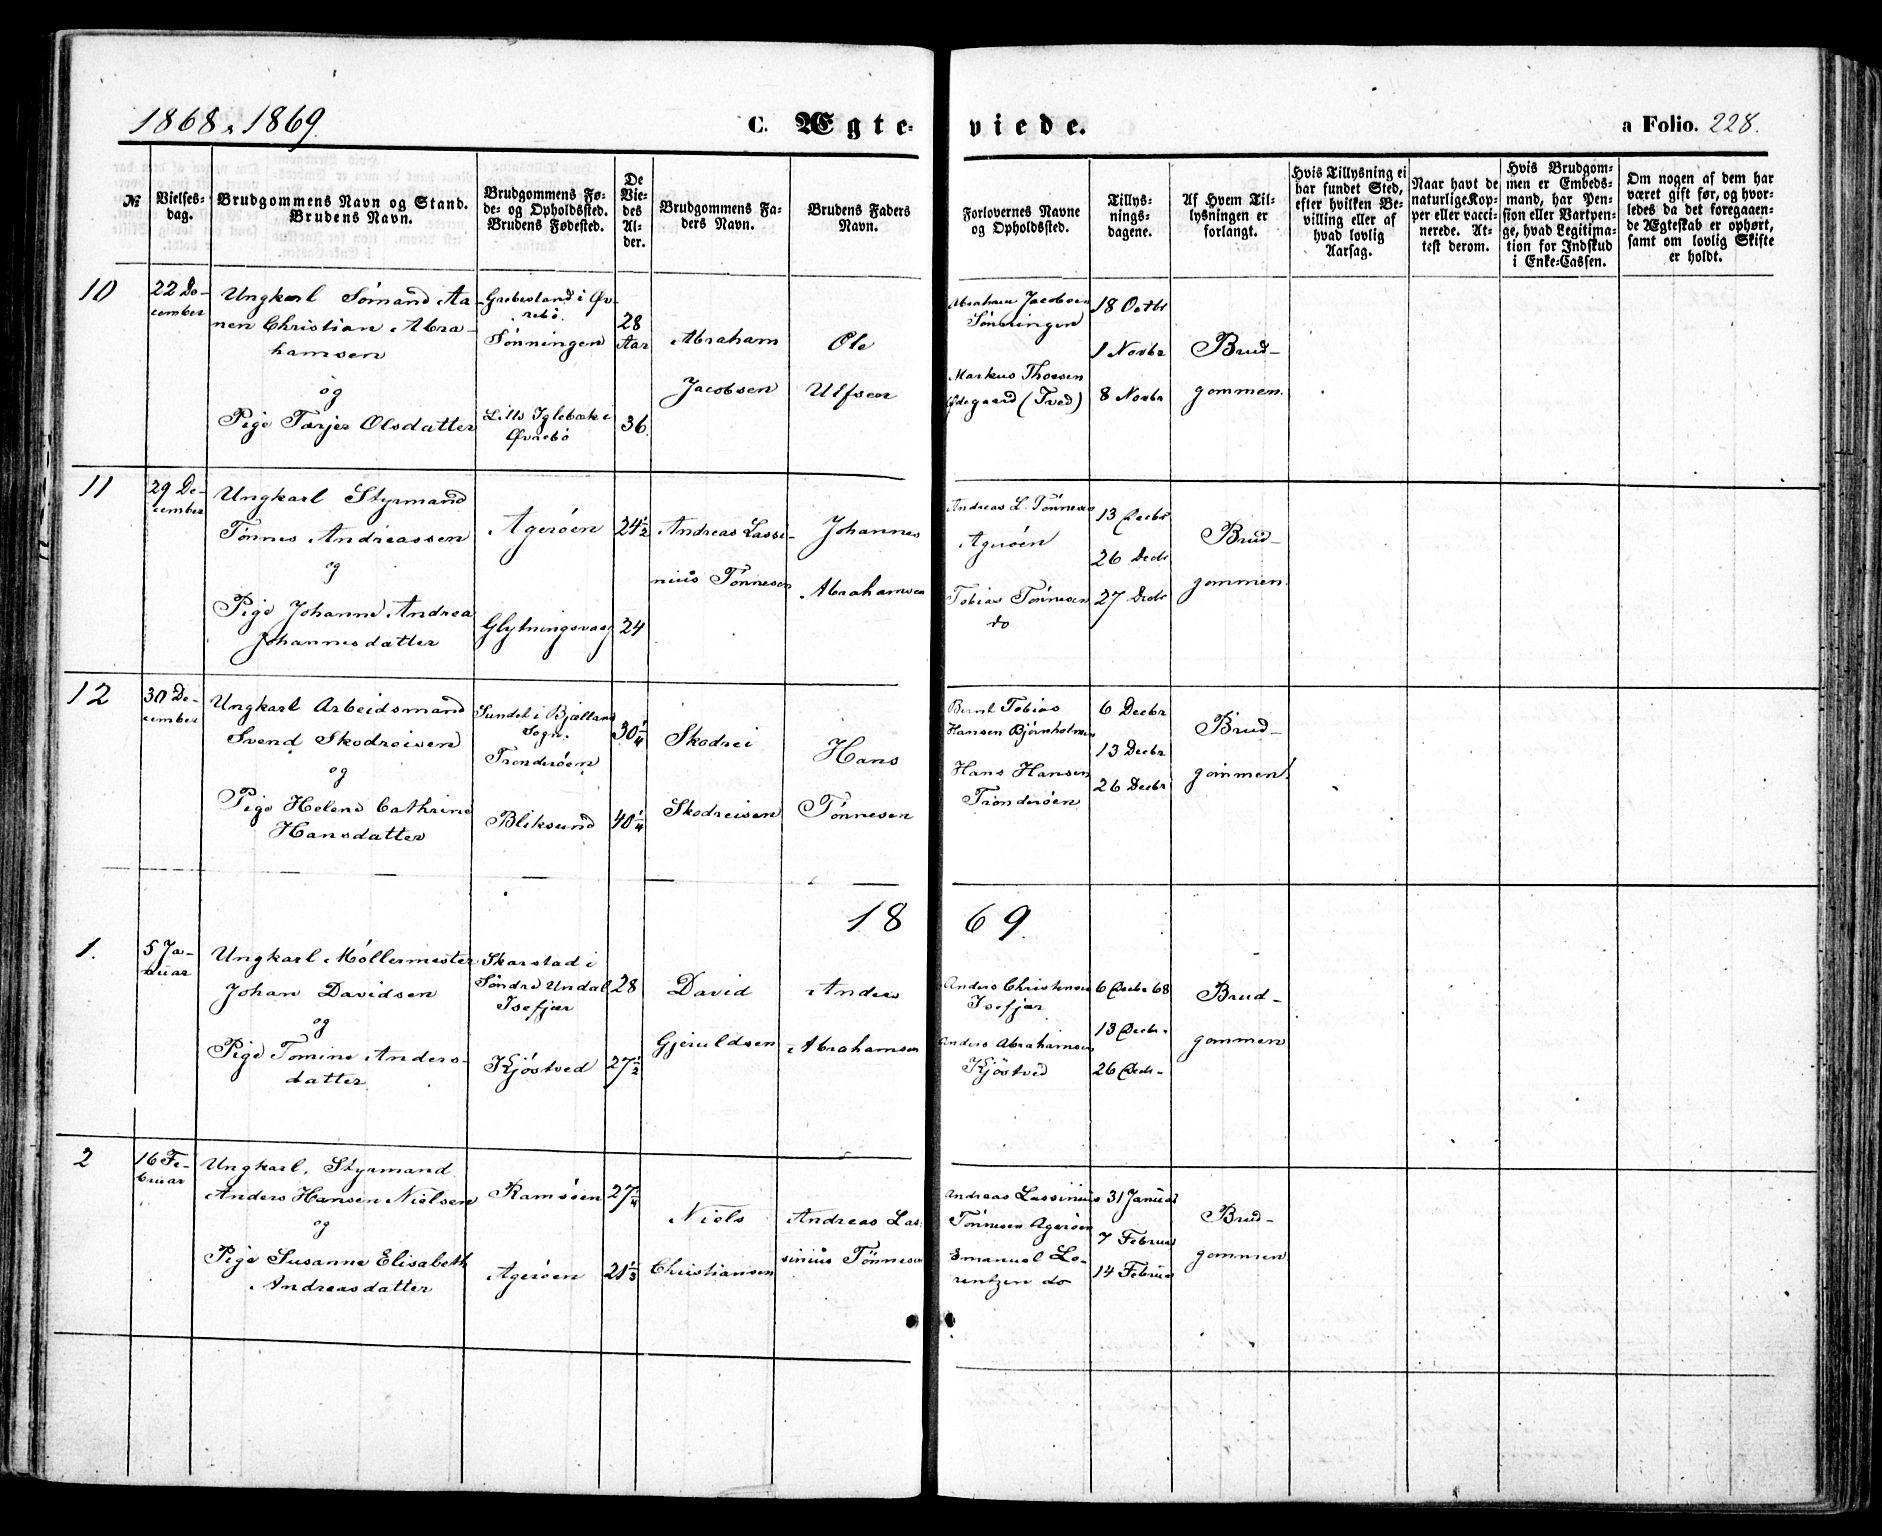 1868 & 1869.
C. Ægte-
viede.
a Folio. 228.
№
Vielses-
dag.
Brudgommens Navn og Stand.
Brudens Navn.
Brudgommens Fø-
de- og Opholdssted.
Brudens Fødested.
De
Vie-
des
Al-
der.
Brudgommens Fa-
ders Navn.
Brudens Faders
Navn.
Forlovernes Navne
og Opholdssted.
Tillys-
nings-
dagene.
Af Hvem Til-
lysningen er
forlangt.
Hvis Tillysning ei
har fundet Sted,
efter hvilken Be-
villing eller af
hvad lovlig
Aarsag.
Naar havt de
naturlige Kop-
per eller vacci-
nerede. At-
test derom.
Hvis Brudgom-
men er Embeds-
mand, har Pen-
sion eller Vartpen-
ge, hvad Legitima-
tion for Indskud
i Enke-Cassen.
Om nogen af dem har
været gift før, og hvor-
ledes da det foregaaen-
de Ægteskab er ophørt,
samt om lovlig Skifte
er holdt.
10
22 De-
cember
Ungkarl Sömand Aa-
nen Christian Abra-
hamsen
og
Pige Tarjer Olsdatter
Grobesland i Öv-
rebö.
Sönningen
Lille Iglebæk i
Övrebö
28
Aar
36
Abraham
Jacobsen
Ole
Ulfsen
Abraham Jacobsen
Sönningen
Markus Thorsen
Ödegaard (Tved)
18 Octbr
1 Novbr
8 Novbr
Brud-
gommen.
11
29 De-
cember
Ungkarl Styrmand
Tönnes Andreassen
og
Pige Johanne Andrea
Johannesdatter
Ageröen
Glytningsvaag
24 1/2
24
Andreas Lassi-
nius Tönnesen
Johannes
Abrahamsen
Andreas L. Tönnesen
Ageröen
Tobias Tönnesen
do
13 Decbr
26 Decbr
27 Decbr
Brud-
gommen.
12
30 De-
cember
Ungkarl Arbeidsmand
Svend Skodreisen
og
Pige Helene Cathrine
Hansdatter
Sundet i Bjelland
Sogn.
Tronderöen
Bliksund
30 1/4
40 1/4
Skodrei
Skodreisen
Hans
Tönnesen
Bernt Tobias
Hansen Björnholmen
Hans Hansen
Tronderöen
6 Decbr
13 Decbr
26 Decbr
Brud-
gommen.
18 69.
1.
5 Ja-
nuar
Ungkarl Möllermester
Johan Davidsen
og
Pige Tomine Anders-
datter
Skarstad i
Söndre Undal
Isefjær
Kjöstved
28
27 1/2
David
Gjeruldsen
Anders
Abrahamsen
Anders Christensen
Isefjær
Anders Abrahamsen
Kjöstved
6 Decbr 68
13 Decbr.
26 Decbr.
Brud-
gommen
2
16 Fe-
bruar
Ungkarl, Styrmand
Anders Hansen Nielsen
og
Pige Susanne Elisabeth
Andreasdatter
Ramsöen
Ageröen
27 1/4
21 1/3
Niels
Christiansen
Andreas Las-
sinius Tönnesen
Andreas Lassinius
Tönnesen Ageröen
Emanuel Lo-
rentzen do
31 Januar
7 Februar
14 Februar
Brud-
gommen